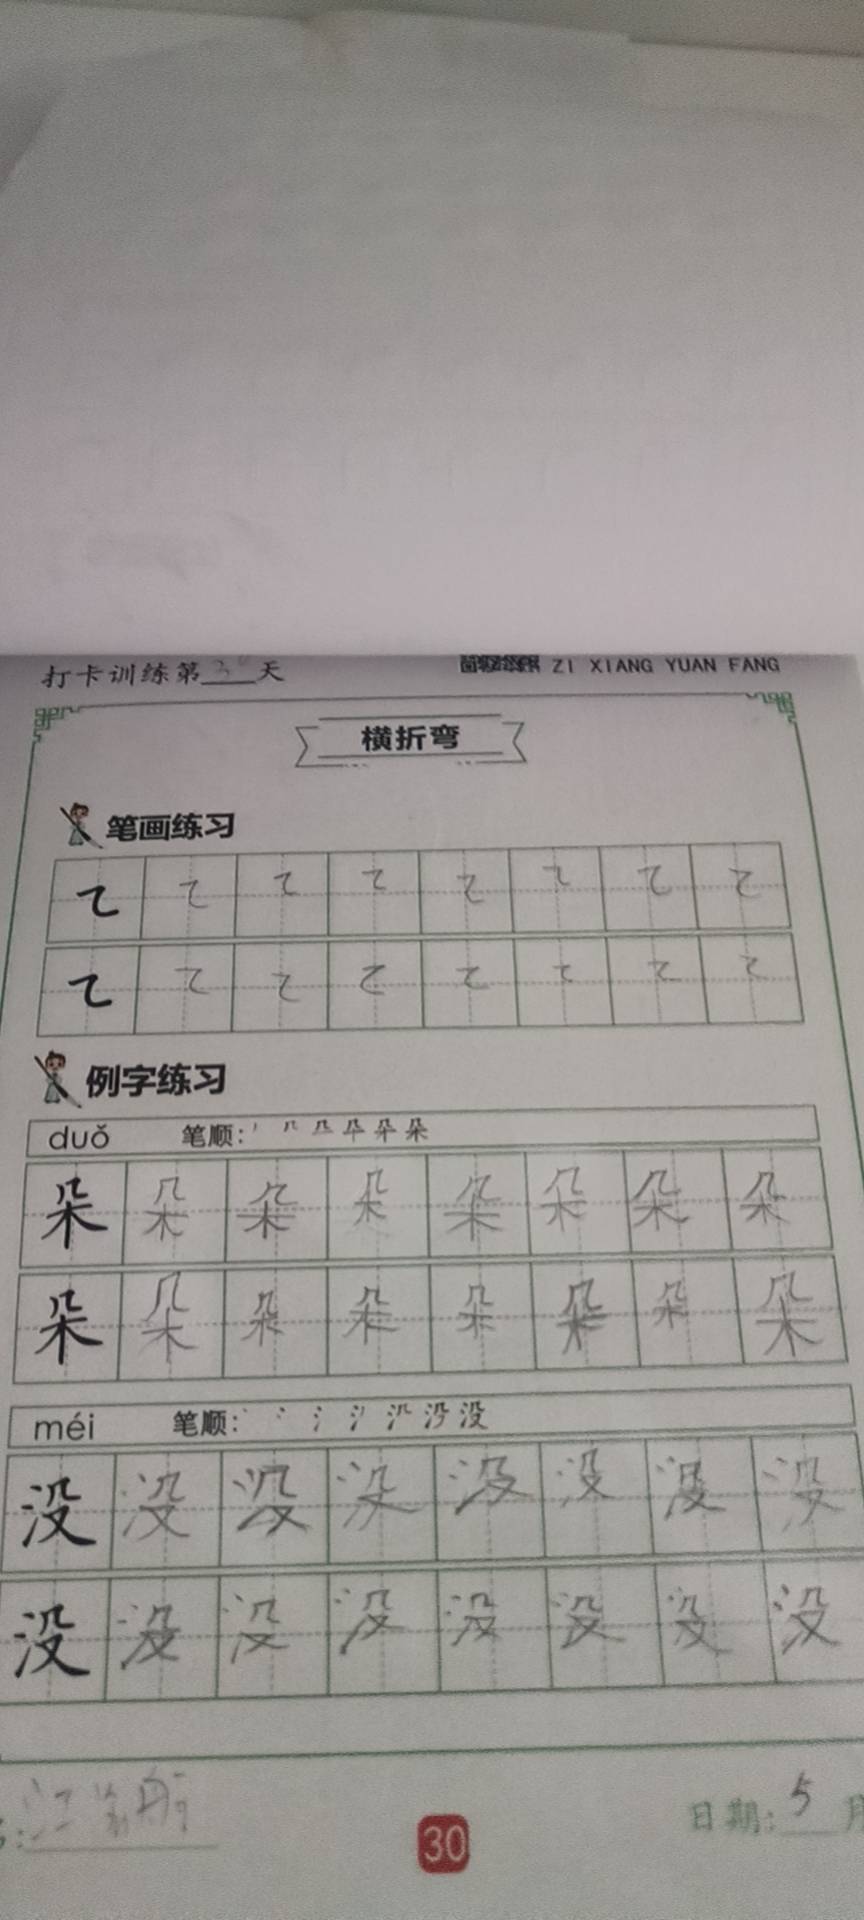 打卡训练第30天
ZI XIANG YUAN FANG
横折弯
笔画练习
㇍ ㇍ ㇍ ㇍ ㇍ ㇍ ㇍ ㇍
㇍ ㇍ ㇍ ㇍ ㇍ ㇍ ㇍ ㇍
例字练习
duǒ 笔顺:
朵 朵 朵 朵 朵 朵 朵 朵
朵 朵 朵 朵 朵 朵 朵 朵
méi 笔顺:
没 没 没 没 没 没 没 没
没 没 没 没 没 没 没 没
江 航
30
日期: 5 月